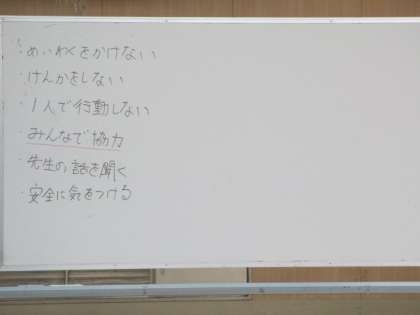 ・めいわくをかけない
・けんかをしない
・1人で行動しない
・みんなで協力
・先生の話を聞く
・安全に気をつける